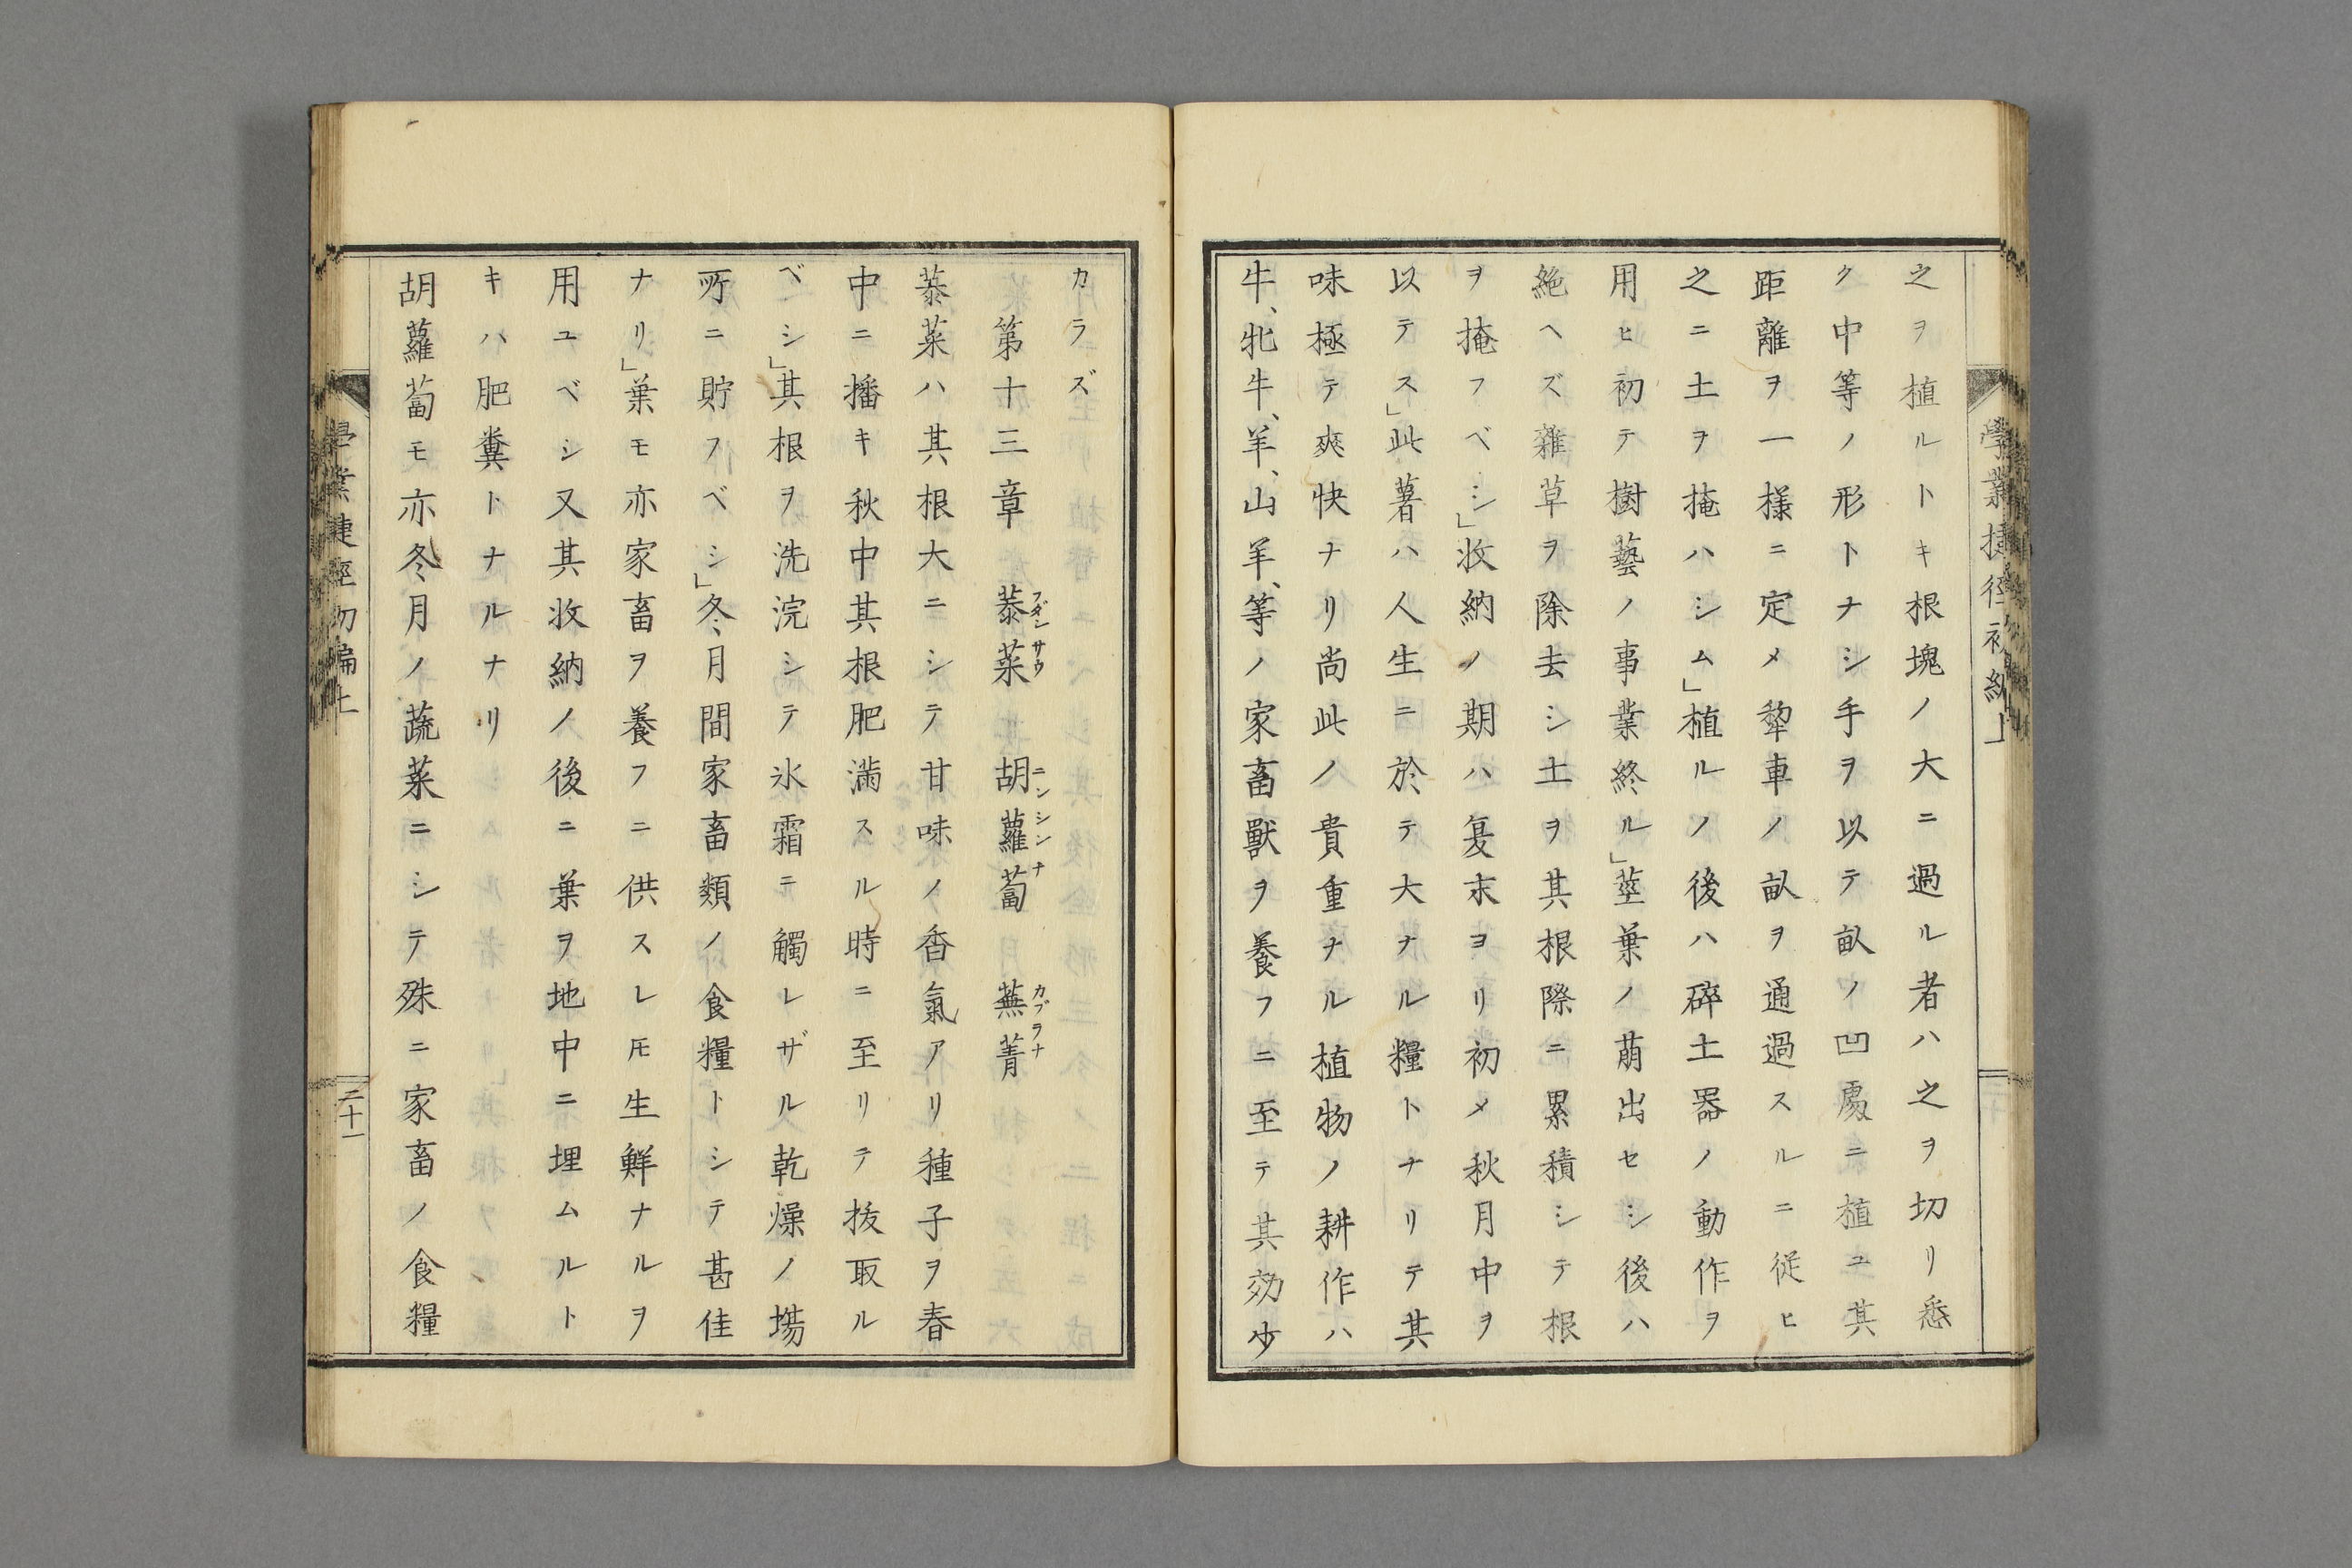 學業捷徑初編上
之ヲ植ルトキ根塊ノ大ニ過ル者ハ之ヲ切リ悉
ク中等ノ形トナシ手ヲ以テ畝ノ凹處ニ植ユ其
距離ヲ一様ニ定メ犂車ノ畝ヲ通過スルニ従ヒ
之ニ土ヲ掩ハシム」植ルノ後ハ碎土器ノ動作ヲ
用ヒ初テ樹藝ノ事業終ル」莖葉ノ萠出セシ後ハ
絶ヘズ雜草ヲ除去シ土ヲ其根際ニ累積シテ根
ヲ掩フベシ」收納ノ期ハ夏末ヨリ初メ秋月中ヲ
以テス」此薯ハ人生ニ於テ大ナル糧トナリテ其
味極テ爽快ナリ尚此ノ貴重ナル植物ノ耕作ハ
牛、牝牛、羊、山羊、等ノ家畜獸ヲ養フニ至テ其効少
カラズ
第十三章 菾菜 胡蘿蔔 蕪菁
フダンサウ ニンシンナ カブラナ
菾菜ハ其根大ニシテ甘味ノ香氣アリ種子ヲ春
中ニ播キ秋中其根肥滿スル時ニ至リテ拔取ル
ベシ」其根ヲ洗浣シテ氷霜ニ觸レザル乾燥ノ塲
所ニ貯フベシ」冬月間家畜類ノ食糧トシテ甚佳
ナリ」葉モ亦家畜ヲ養フニ供スレ𪜈生鮮ナルヲ
用ユベシ又其收納ノ後ニ葉ヲ地中ニ埋ムルト
キハ肥糞トナルナリ
胡蘿蔔モ亦冬月ノ蔬菜ニシテ殊ニ家畜ノ食糧
學業捷徑初編上
二十一